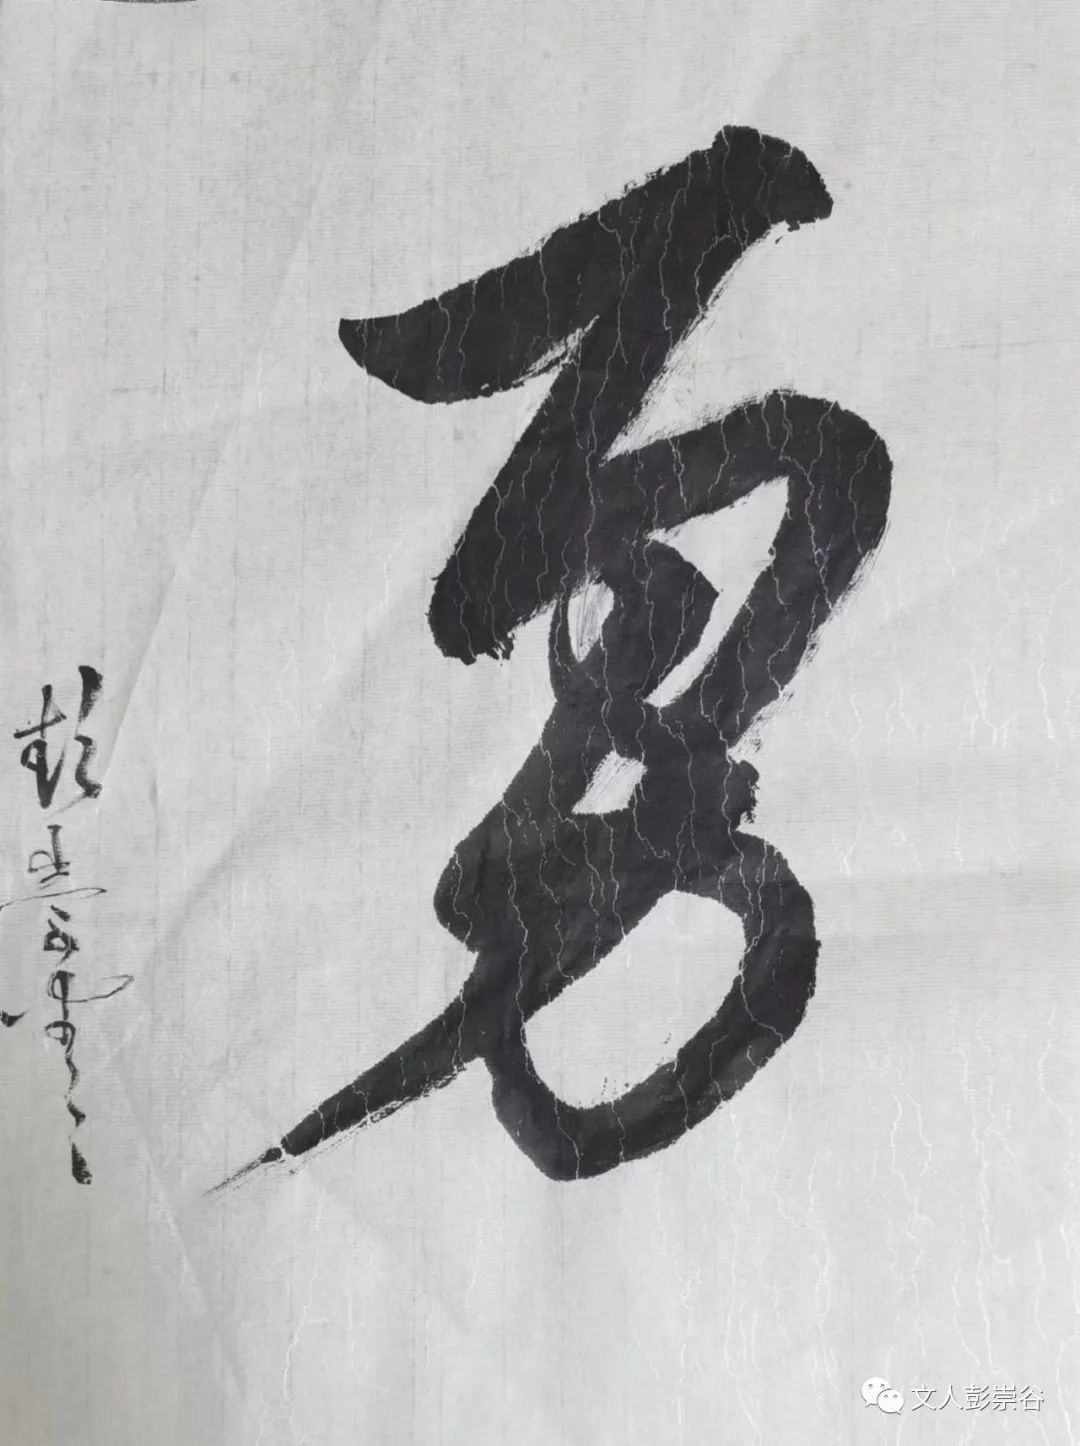 勇
彭崇谷
文人彭崇谷